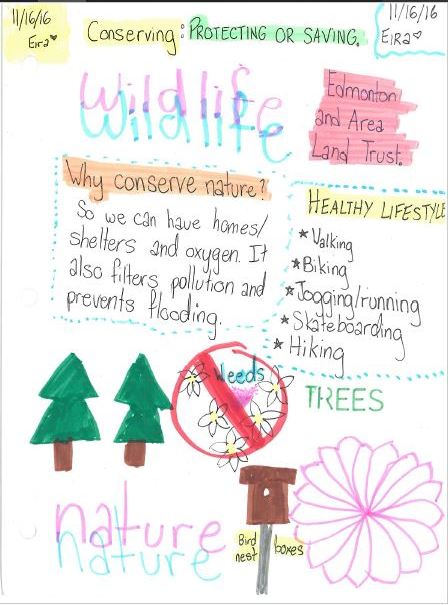 11/16/16
Eira
Conserving: PROTECTING OR SAVING.
11/16/16
EIRA
Wildlife
Wildlife
Edmonton
and Area
Land Trust.
Why conserve nature?
So we can have homes/
shelters and oxygen. It
also filters pollution and
prevents flooding.
HEALTHY LIFESTYLE
* Walking
* Biking
* Jogging/running
* Skateboarding
* Hiking
Weeds
TREES
nature
nature
Bird
nest boxes